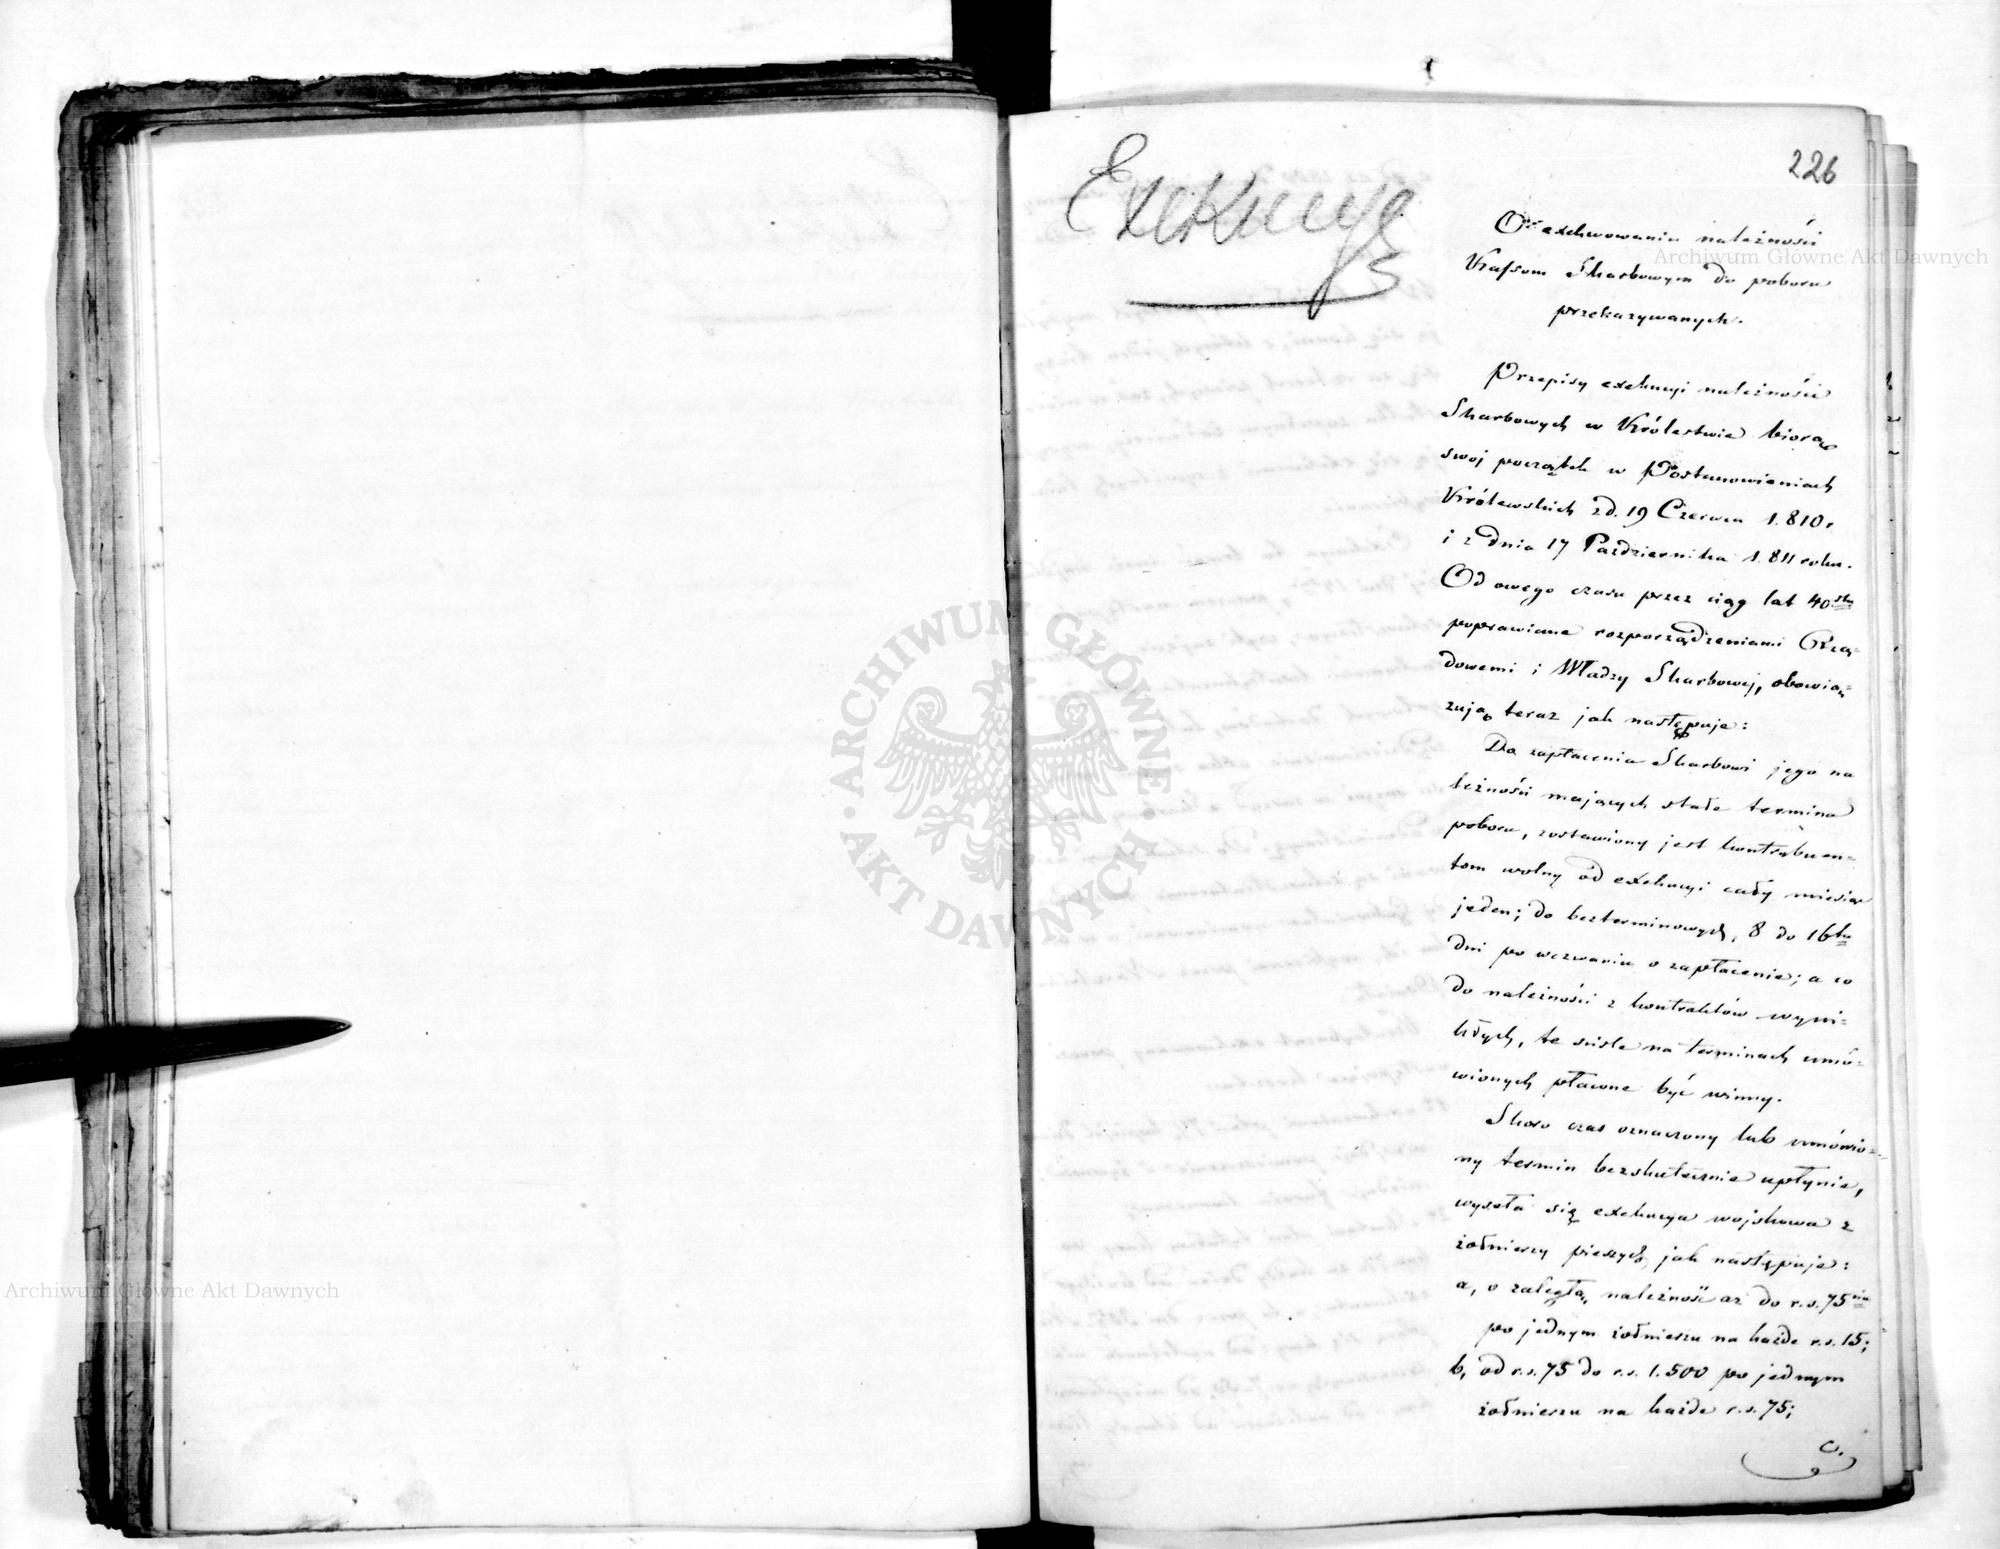 226
Exekucye
O exekwowaniu należności
Kassom Skarbowym do poboru
przekazywanych.
Przepisy exekucyi należności
Skarbowych w Królestwie biorą
swoj początek w Postanowieniach
Królewskich z d. 19 Czerwca 1.810 r.
i z dnia 17 Pazdziernika 1.811 roku.
Od owego czasu przez ciąg lat 40stu
poprawiane rozporządzeniami Rzą=
dowemi i Władzy Skarbowej, obowią=
zują teraz jak następuje:
Do zapłacenia Skarbowi jego na
leżności mających stałe termina
poboru, zostawiony jest kontrybuen=
tom wolny od exekucyi cały miesiąc
jeden; do bezterminowych, 8 do 16tu
dni po wezwaniu o zapłacenie; a co
do należności z kontraktów wyni=
kłych, te ściśle na terminach umó=
wionych płacone być winny.
Skoro czas oznaczony lub umówio=
ny termin bezskutecznie upłynie,
wyseła się exekucya wojskowa z
żołnierzy pieszych jak następuje:
a, o zaległą należność aż do r.s. 75ciu
po jednym żołnierzu na każde r.s. 15;
b, od r.s. 75 do r.s. 1.500 po jednym
żołnierzu na każde r.s. 75;
c.
Archiwum Główne Akt Dawnych
ARCHIWUM GŁÓWNE AKT DAWNYCH
Archiwum Główne Akt Dawnych